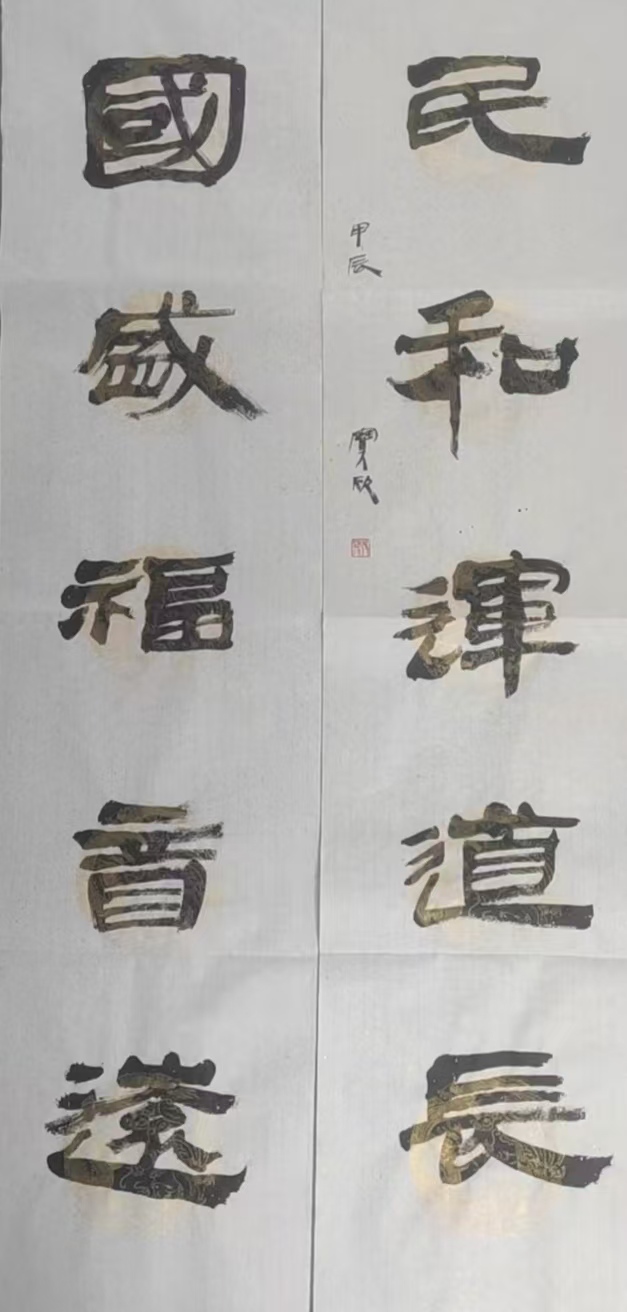 民和運道長
國盛福音遠
甲辰